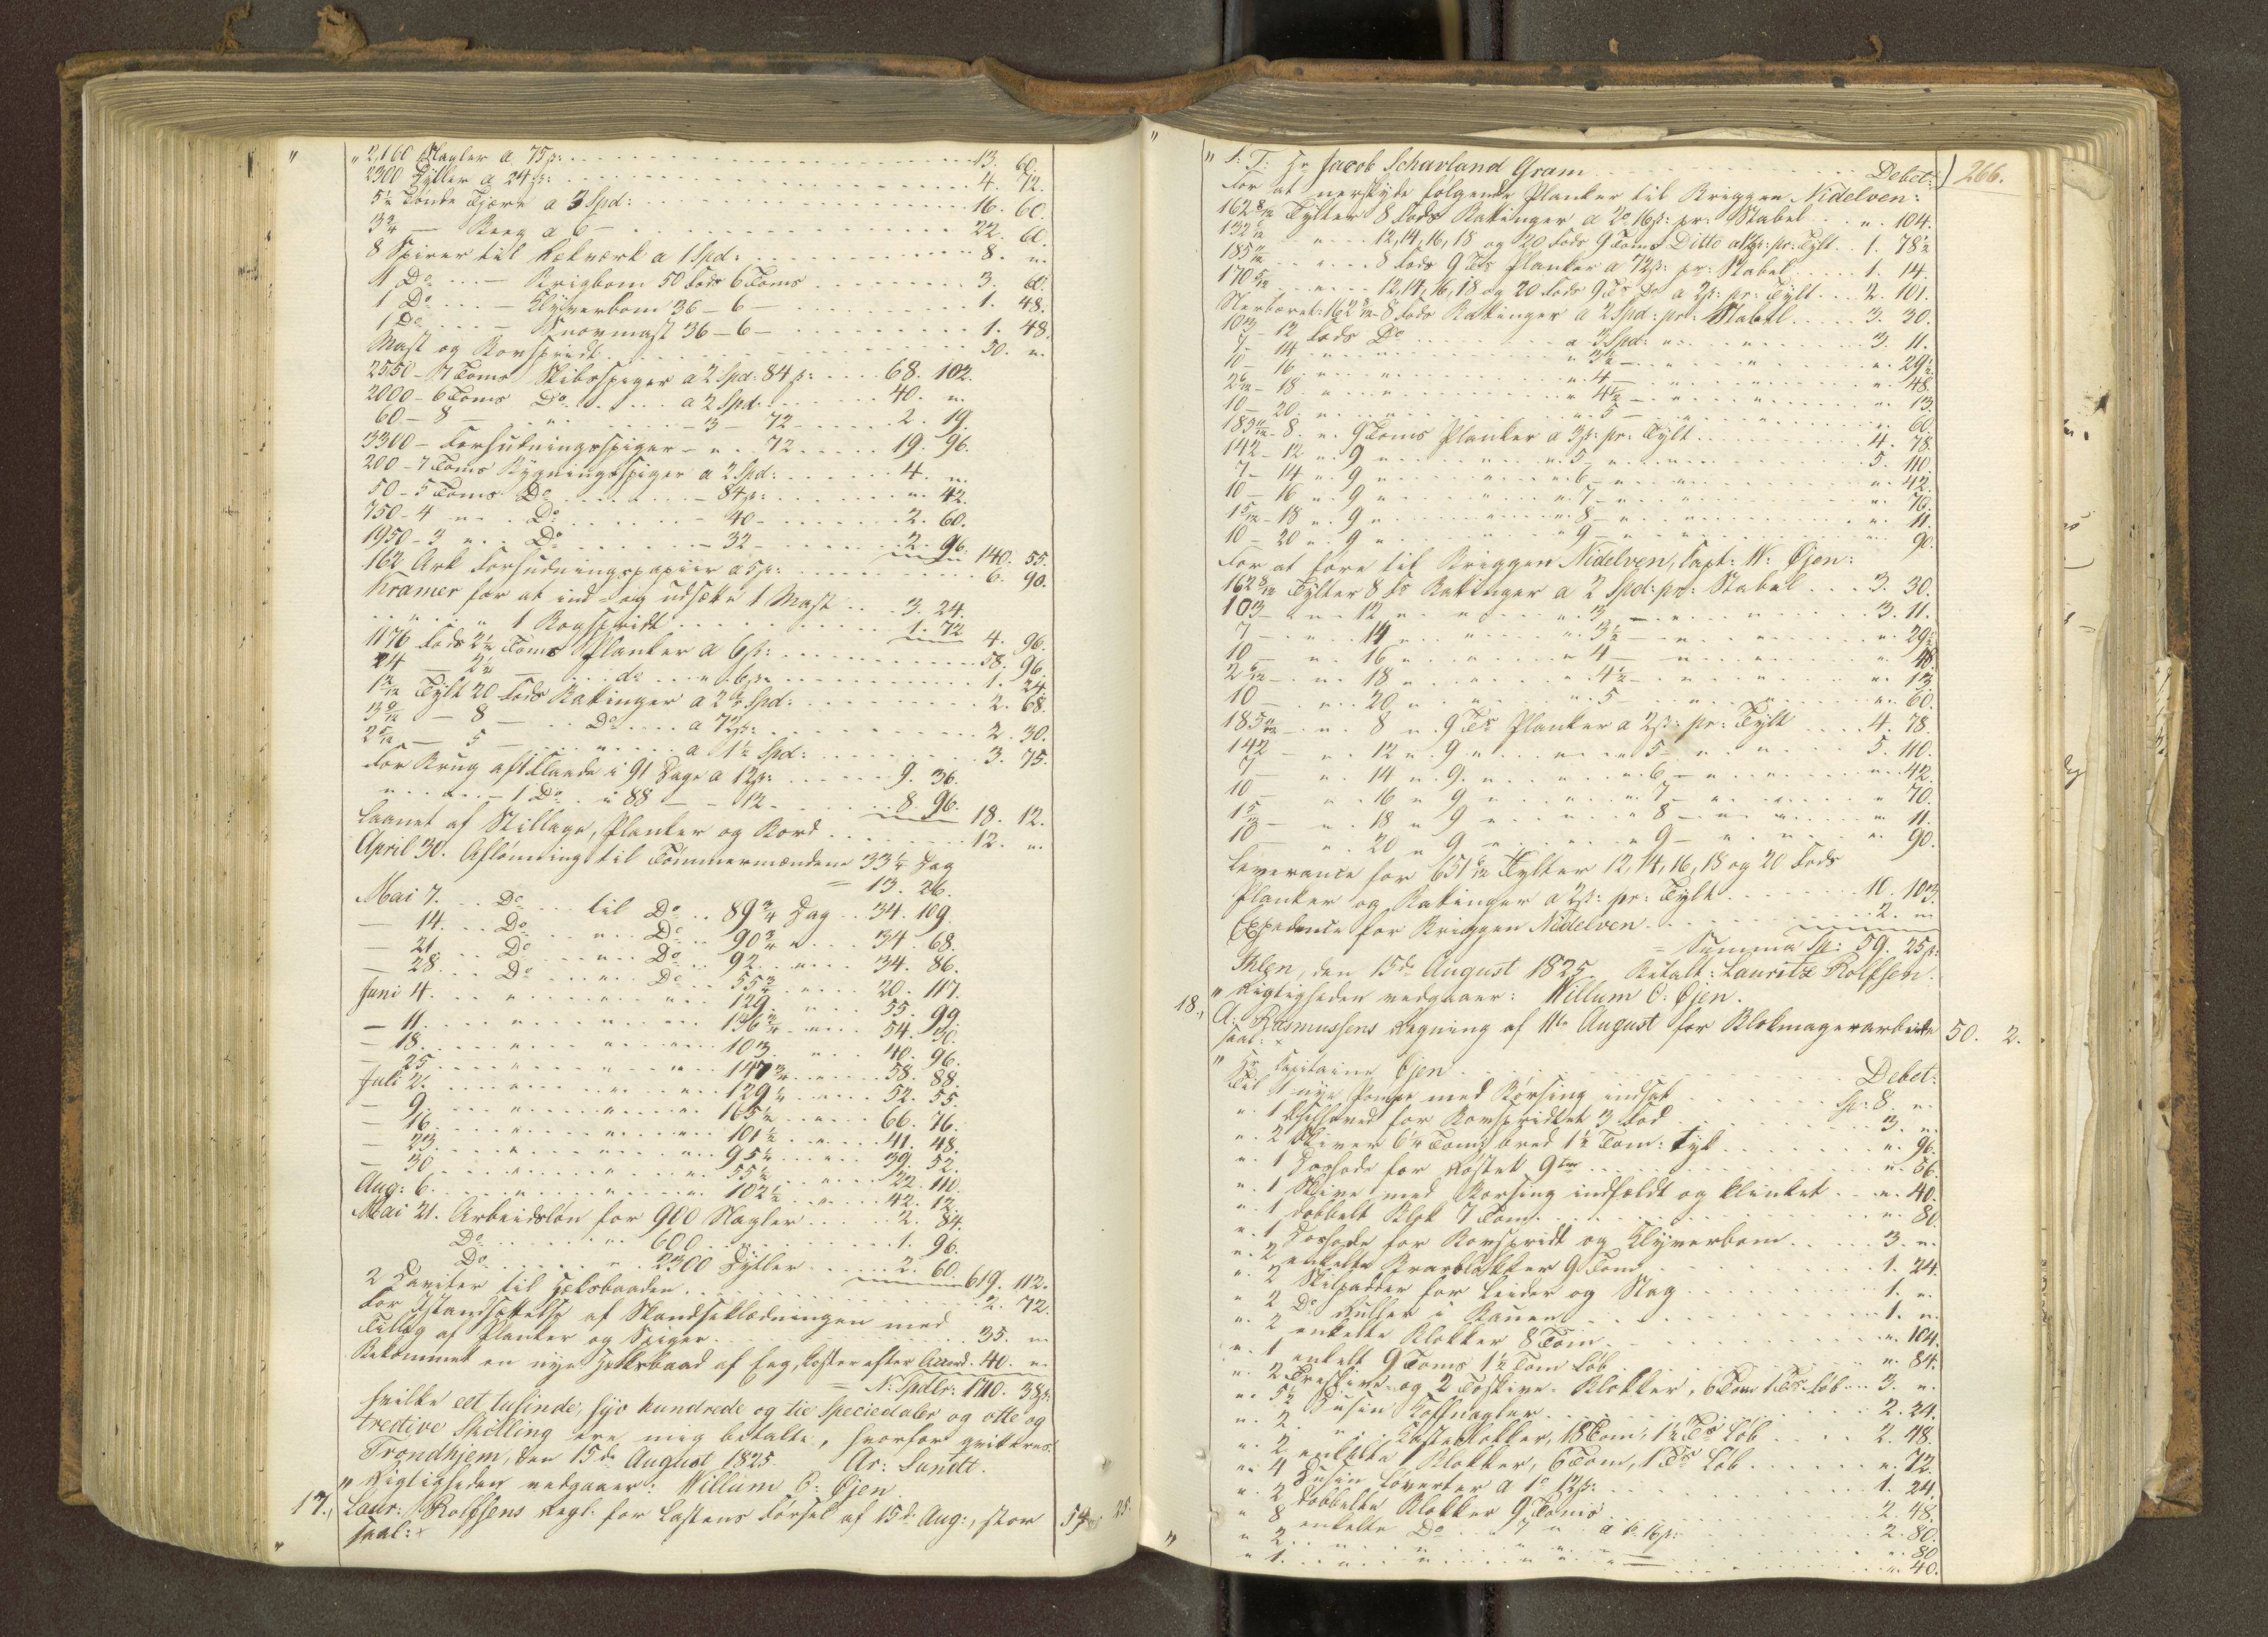 " 2,160 Nagler a 75 ß: 13. 60.
2300 Dytler a 24 ß: 4. 72.
5½ Tønde Tjære a 3 Spd: 16. 60.
3¾ — Beeg a 6 — 22. 60.
8 Spirer til Rekværk a 1 Spd: 8. "
1 Do — Brigbom 50 Fods 6 Toms 3. 60.
1 Do — Klyverbom 36 — 6 — 1. 48.
1 Do — Snovmast 36 — 6 — 1. 48.
Mast og Bovspridt 50. "
2550 — 7 Toms Skibsspiger a 2 Spd: 84 ß: 68. 102.
2000 — 6 Toms Do a 2 Spd: 40. "
60 — 8 — " — 3 — 72 — 2. 19.
3300 — Forhudningsspiger — " 72 19. 96.
200 — 7 Toms Bygningsspiger a 2 Spd: 4. "
50 — 5 Toms Do — 84 ß: " 42.
750 — 4 " Do — 40 — 2. 60.
1950 — 3 " Do — 32 — 2. 96. 140. 55.
162 Ark Forhudningspapiir a 5 ß: 6. 90.
Kramer for at ind- og udsætte 1 Mast 3. 24.
" " 1 Bogspridt 1. 72 4. 96.
1176 Fods 2½ Toms Planker a 6 ß: 58. 96.
24 — 2½ — do a 6 ß: 1. 24.
Tylt 20 Fods Battinger 2. 68.
— 8 — Do a 72 ß: 2. 30.
— 5 — " a 1½ Spd: 3. 75.
For Brug af Flaade i 91 Dage a 12 ß: 9. 36.
" " — 1 Do i 88 — — 12 — 8. 96. 18. 12.
Laanet af Stillage, Planker og Bord 12. "
April 30. Aflønning til Tømmermændene 33¼ Dag
= 13. 26.
Mai 7. Do til Do 89¾ Dag 34. 109.
— 14. Do " Do 90¾ " 34. 68.
— 21. Do " Do 92 " 34. 86.
— 28. Do " Do 55¾ 20. 117.
Juni 4. " " " 129 " 55. 99.
— 11. " " " 136¾ " 54. 30.
— 18. " " " 103 " 40. 96.
— 25 " " " 147¾ " 58. 88.
Juli 2. " " " 129¼ " 52. 55.
— 9. " " " 165½ " 66. 76.
— 16. " " " 101½ " 41. 48.
— 23. " " " 95¼ " 39. 52.
— 30 " " " 55½ " 22. 110.
Aug: 6. " " " 102½ " 42. 12.
Mai 21. Arbeidsløn for 900 Nagler 2. 84.
Do " 600 " 1. 96.
Do " 2300 Dytler 2. 60. 619. 112.
2 Daviter til Hæksbaaden 2. 72.
For Istandsættelse af Skandseklædningen med
Tillæg af Planker og Spiger 35. "
Bekommet en nye Hæksbaad af Eeg, koster efter Accord. 40. "
= N: Spdlr: 1710. 38 ß:
hvilke eet tusinde, syv hundrede og tie Speciedaler og otte og
tredive Skilling ere mig betalte, hvorfor qvitteres.
Trondhjem, den 15de August 1825. Ar: Lundt.
" Rigtigheden vedgaaer: Willum O: Øjen.
17., Laur: Rolfsens Regl: for Lastens Førsel af 15de Aug:, stor 59. 25.
saal: ×
" S: T: Hr Jacob Scharland Gram Debet: 266.
For at nerskyde følgende Planker til Briggen Nidelven:
162 8/12 Tylter 8 Fods Battinger a 20 16 ß: pr: Stabel " 104.
132 " 12, 14, 16, 18 og 20 Fods 9 Toms Ditto pr: Tylt 1. 78½
185 " 8 Fods 9 Ts Planker a 72 ß: pr: Stabel 1. 14.
170 5/12 " 12, 14, 16, 18 og 20 Fods 9 Ts Do a 2 ß: pr: Tylt 2. 101.
162 8/12 — 8 Fods Battinger a 2 Spd: pr: Stabel 3. 30.
103 — 12 Fods Do a 3 Spd: " 3. 11.
7 — 14 " " " 3½ — " " 29½.
10 — 16 " " " 4 — " " 48.
2 — 18 " " " 4½ — " " 13.
10 — 20 " " " 5 — " " 60.
185 — 8 " 9 Toms Planker a 3 ß: pr: Tylt 4. 78.
142 — 12 " 9 " " 5 — " 5. 110.
7 — 14 " 9 " " 6 — " " 42.
10 — 16 " 9 " " 7 — " " 70.
1 5/12 — 18 " 9 " " 8 — " " 11.
10 — 20 " 9 " " 9 — " " 90.
For at føre til Briggen Nidelven, Capt: W: Øjen:
162 8/12 Tylter 8 Fs Battinger a 2 Spd: pr: Stabel 3. 30.
103 — " 12 " " 3 — " 3. 11.
7 — " 14 " " 3½ — " " 29½
10 — " 16 " " 4 — " " 48.
2 — " 18 " " 4½ — " " 13.
10 — " 20 " " 5 — " " 60.
185 — " 8 " 9 Ts Planker a 3 ß: pr: Tylt 4. 78.
142 — " 12 " 9 " " 5 — " 5. 110.
7 — " 14 " 9 " " 6 — " " 42.
10 — " 16 " 9 " " 7 — " " 70.
1 5/12 — " 18 " 9 " " 8 — " " 11.
10 — " 20 " 9 " " 9 — " " 90.
Leverance for 651 Tylter 12, 14, 16, 18 og 20 Fods
Planker og Battinger a 2 ß: pr: Tylt 10. 103.
Expedence for Briggen Nidelven 2. "
= Summa Sp: 59. 25 ß:
Ihlen, den 15de August 1825. Betalt: Lauritz Rolfsen.
" Rigtigheden vedgaaer: Willum O: Øjen.
18., A: Rasmussens Regning af 11te August for Blokmagerarbeide 50. 2.
saal: ×
" Hr Capitaine Øjen Debet:
Til 1 nye Pompe med Børsing indsat Sp: 8. "
" 1 Eselhoved for Bovspridtet 3 Fod 3. "
" 2 Skiver 6½ Toms bred 1½ Tom: tyk " 96.
" 1 Doshode for Rostet 9 Tm " 56.
" 1 Skive med Børsing indfældt og klinket " 40.
" 1 dobbelt Blok 7 Tom " 80.
" 1 Doshode for Bovspridt og Klyverbom 3. "
" 2 enkelte Brasblokker 9 Tom 1. 24.
" 2 Skilpadder for Leider og Stag 1. "
" 2 Do Ruller i Bauen 1. "
" 2 enkelte Blokker 8 Tom " 104.
" 1 enkelt 9 Toms 1½ Tom Løb " 84.
" 2 Treskive- og 2 Toskive-Blokker, 6 Tom 1 Ts Løb 3. "
" 5½ Dusin Koffnagler 2. 24.
" 2 " Kasteblokker, 18 Tom, 1½ Ts Løb 2. 48.
" 2 enkelte Blokker, 6 Tom, 1 Ts Løb " 72.
" 4 Dusin Løverter a 1 o 12 ß: 1. 24.
" 2 dobbelte Blokker 9 Toms 2. 48.
" 8 enkelte Do 7 " a 1 o 16 ß: 2. 80.
" 2 " " " " — " 80
" 1 " " " " — " 40.